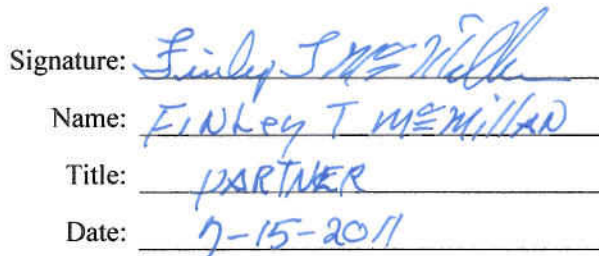 Signature: Finley T McMillan
Name: FINLey T McMillAN
Title: PARTNER
Date: 7-15-2011